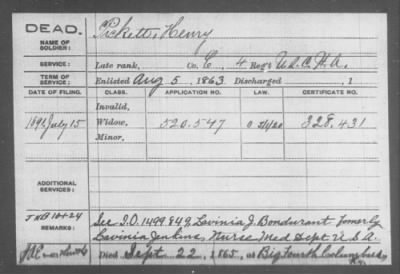 DEAD.
NAME OF SOLDIER:
Pickett, Henry
SERVICE:
Late rank, Co. C, 4 Reg't U.S.C.H.A.
TERM OF SERVICE:
Enlisted Aug 5, 1863. Discharged , 1
DATE OF FILING. CLASS. APPLICATION NO. LAW. CERTIFICATE NO.
Invalid,
1892 July 15 Widow, 520.547 328.431
Minor,
ADDITIONAL SERVICES:
REMARKS:
See I.O. 1499849, Lavinia J. Bondurant formerly
Lavinia Jenkins, Nurse Med Dept U.S.A.
Died Sept. 22, 1865, at Big Fourth Columbus,
Ky.